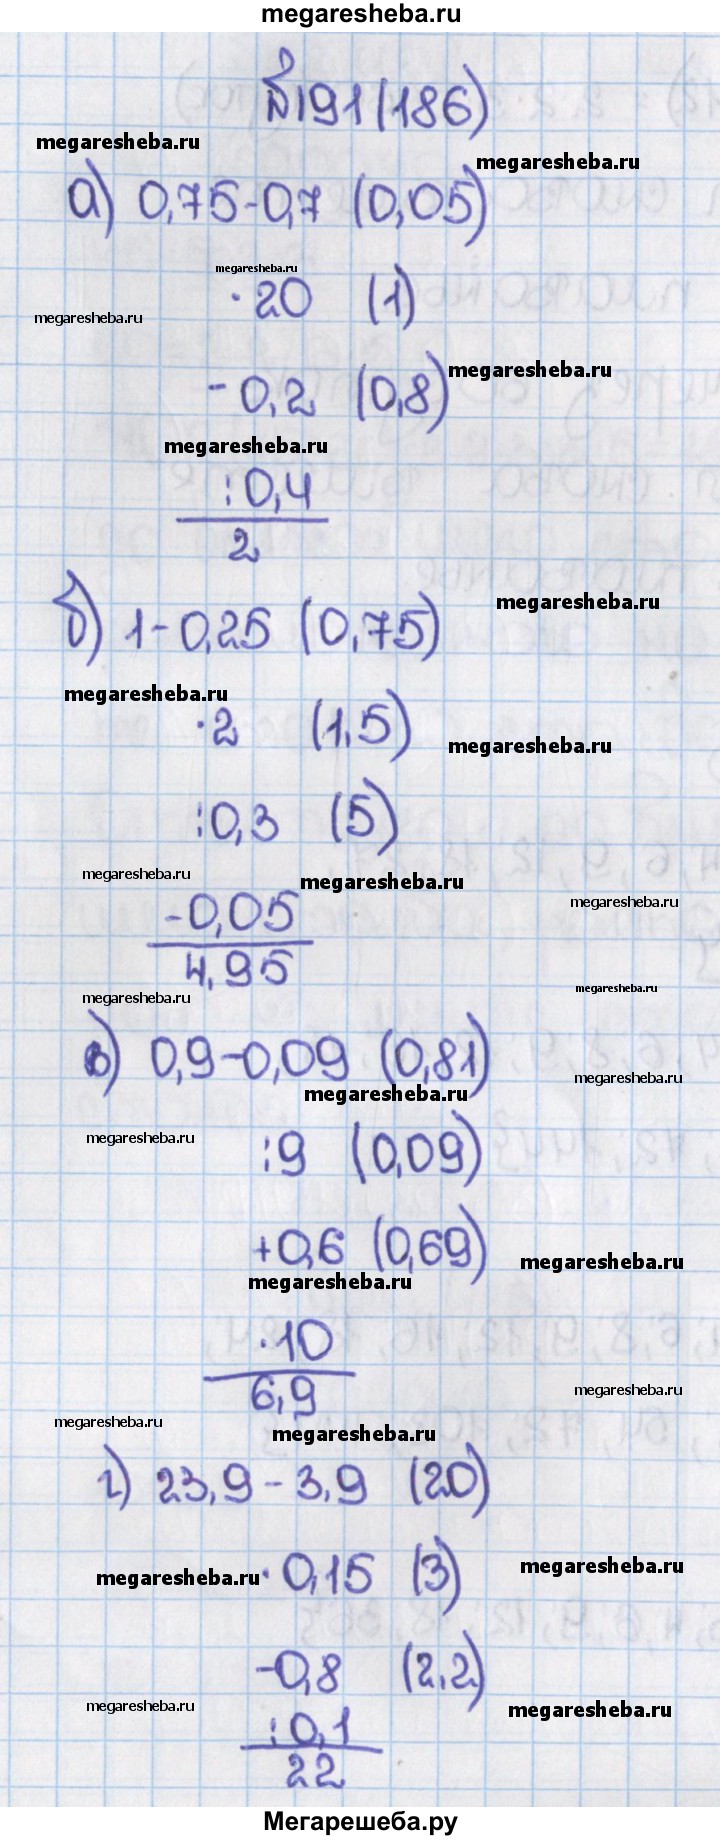 megaresheba.ru
№191(186)
megaresheba.ru
megaresheba.ru
а) 0,75-0,7 (0,05)
megaresheba.ru
·20 (1)
megaresheba.ru
-0,2 (0,8)
megaresheba.ru
megaresheba.ru
:0,4
2
б) 1-0,25 (0,75)
megaresheba.ru
megaresheba.ru
·2 (1,5)
megaresheba.ru
:0,3 (5)
megaresheba.ru
megaresheba.ru
megaresheba.ru
-0,05
4,95
megaresheba.ru
megaresheba.ru
в) 0,9-0,09 (0,81)
megaresheba.ru
megaresheba.ru
megaresheba.ru
:9 (0,09)
+0,6 (0,69)
megaresheba.ru
megaresheba.ru
·10
6,9
megaresheba.ru
megaresheba.ru
megaresheba.ru
г) 23,9-3,9 (20)
megaresheba.ru
·0,15 (3)
megaresheba.ru
-0,8 (2,2)
megaresheba.ru
megaresheba.ru
:0,1
22
Мегарешеба.ру